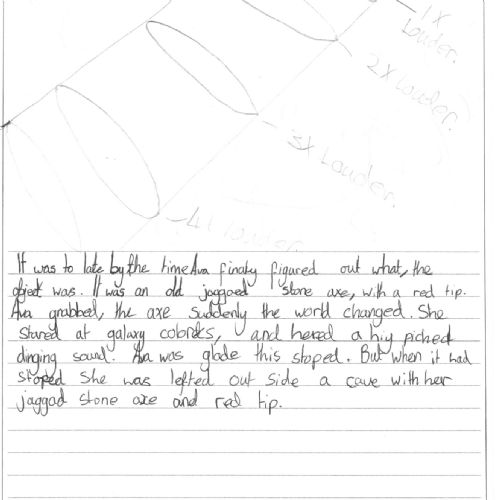 1X
Louder.
2X Louder.
3X Louder.
4X Louder.
It was to late by the time Ava finaly figured out what, the
object was. It was an old jaggaed stone axe, with a red tip.
Ava grabbed, the axe suddenly the world changed. She
stared at galaxy colores, and hered a hiy piched
dinging sound. Ava was glade this stoped. But when it had
stoped She was lefted out side a cave with her
jaggad stone axe and red tip.